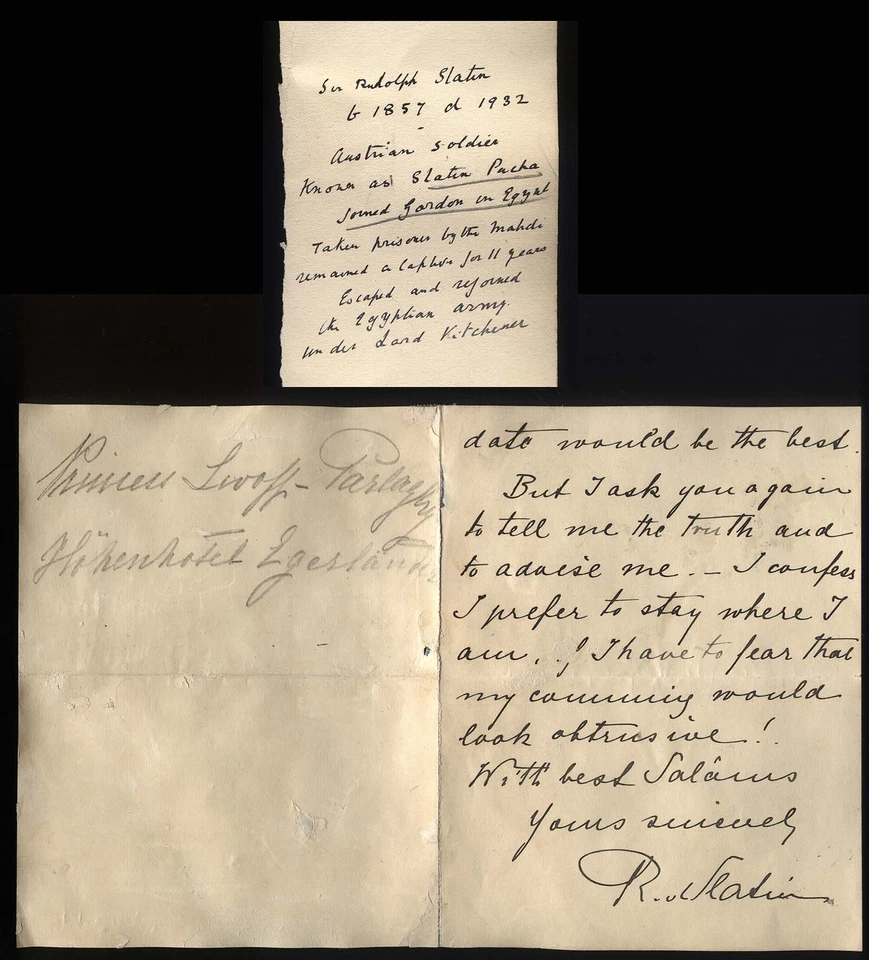 Sir Rudolph Slatin
b 1857 d 1932
-
Austrian soldier
Known as Slatin Pacha
Joined Gordon in Egypt
Taken prisoner by the Mahdi
remained a captive for 11 years
Escaped and rejoined
the Egyptian army.
under Lord Kitchener
Princess Lwoff-Parlaghy
Höhenhotel Egerländer
date would be the best.
But I ask you again
to tell me the truth and
to advise me. – I confess
I prefer to stay where I
am, if I have to fear that
my comming would
look obtrusive!
With best Salâms
Yours sincerely
R. v Slatin